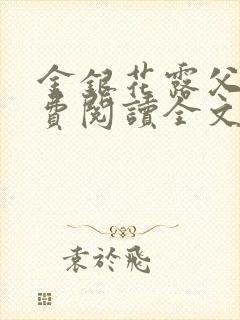 金銀花露父
費閱讀全文
袁於飛